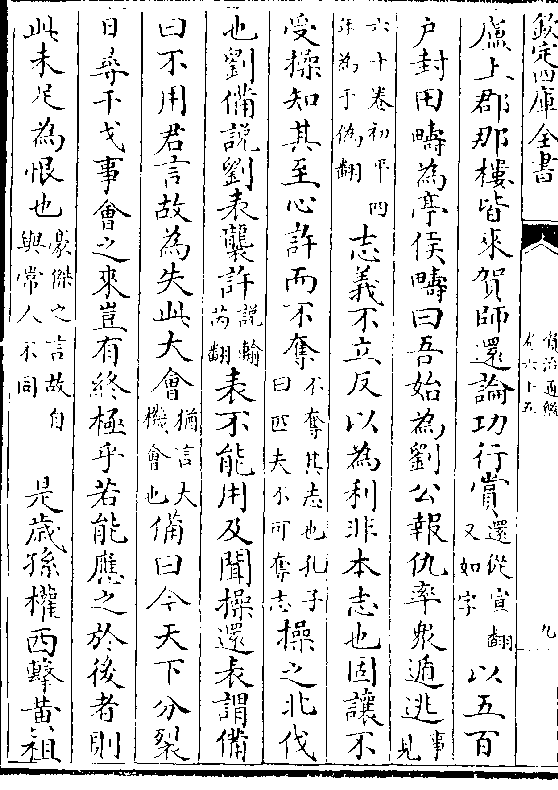 欽定四庫全書
資治通鑑
卷六十五
九
盧上郡那樓皆來賀師還論功行賞還從宣翻又如字以五百
户封田疇為亭侯疇曰吾始為劉公報仇率衆遁逃事見
六十卷初平四年為于偽翻志義不立反以為利非本志也固讓不
受操知其至心許而不奪不奪其志也孔子曰匹夫不可奪志操之北伐
也劉備説劉表襲許説輸芮翻表不能用及聞操還表謂備
曰不用君言故為失此大會猶言大機會也備曰今天下分裂
日尋干戈事會之來豈有終極乎若能應之於後者則
此未足為恨也豪傑之言故自與常人不同是歲孫權西擊黄祖